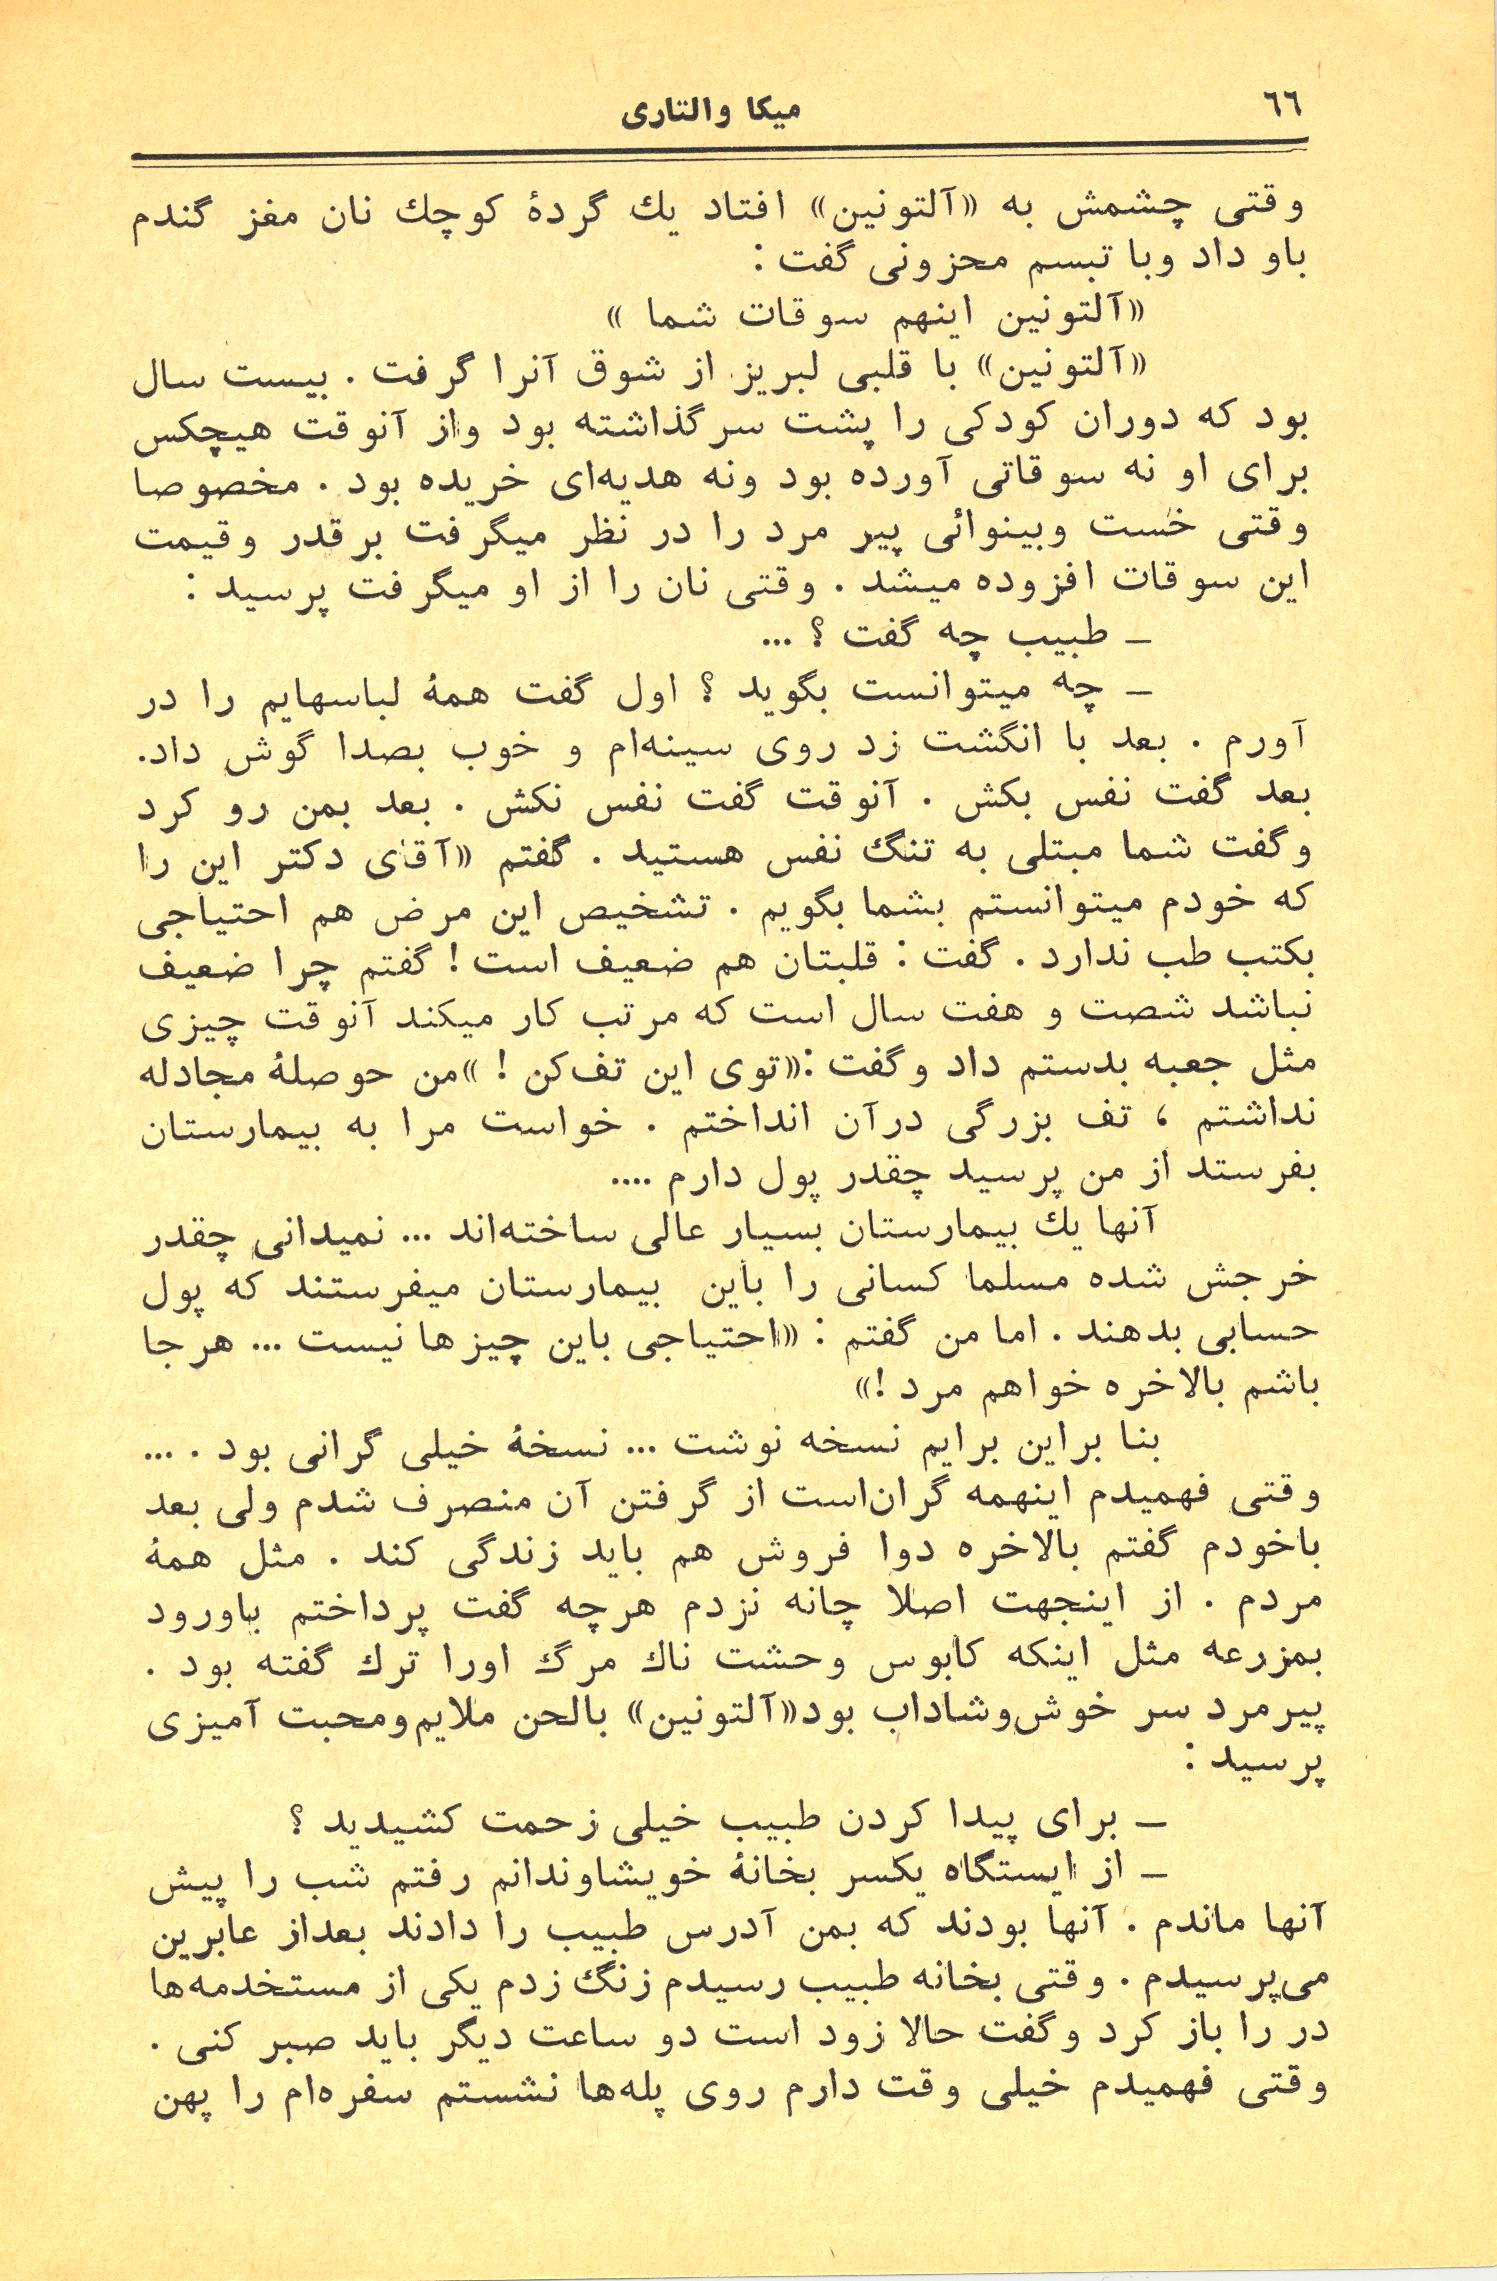 ٦٦
میکا والتاری
وقتی چشمش به «آلتونین» افتاد یك گردهٔ کوچك نان مغز گندم
باو داد وبا تبسم محزونی گفت :
«آلتونین اینهم سوقات شما »
«آلتونین» با قلبی لبریز از شوق آنرا گرفت . بیست سال
بود که دوران کودکی را پشت سر گذاشته بود واز آنوقت هیچکس
برای او نه سوقاتی آورده بود ونه هدیه‌ای خریده بود . مخصوصا
وقتی خست وبینوائی پیر مرد را در نظر میگرفت بر قدر وقیمت
این سوقات افزوده میشد . وقتی نان را از او میگرفت پرسید :
ـ طبیب چه گفت ؟ ...
ـ چه میتوانست بگوید ؟ اول گفت همهٔ لباسهایم را در
آورم . بعد با انگشت زد روی سینه‌ام و خوب بصدا گوش داد.
بعد گفت نفس بکش . آنوقت گفت نفس نکش . بعد بمن رو کرد
وگفت شما مبتلی به تنگ نفس هستید . گفتم «آقای دکتر این را
که خودم میتوانستم بشما بگویم . تشخیص این مرض هم احتیاجی
بکتب طب ندارد . گفت : قلبتان هم ضعیف است ! گفتم چرا ضعیف
نباشد شصت و هفت سال است که مرتب کار میکند آنوقت چیزی
مثل جعبه بدستم داد وگفت :«توی این تف‌کن ! »من حوصلهٔ مجادله
نداشتم ، تف بزرگی درآن انداختم . خواست مرا به بیمارستان
بفرستد از من پرسید چقدر پول دارم ....
آنها یك بیمارستان بسیار عالی ساخته‌اند ... نمیدانی چقدر
خرجش شده مسلما کسانی را باین بیمارستان میفرستند که پول
حسابی بدهند . اما من گفتم : «احتیاجی باین چیزها نیست ... هرجا
باشم بالاخره خواهم مرد !»
بنا براین برایم نسخه نوشت ... نسخهٔ خیلی گرانی بود . ...
وقتی فهمیدم اینهمه گران‌است از گرفتن آن منصرف شدم ولی بعد
باخودم گفتم بالاخره دوا فروش هم باید زندگی کند . مثل همهٔ
مردم . از اینجهت اصلا چانه نزدم هرچه گفت پرداختم باورود
بمزرعه مثل اینکه کابوس وحشت ناك مرگ اورا ترك گفته بود .
پیرمرد سر خوش‌وشاداب بود«آلتونین» بالحن ملایم‌ومحبت آمیزی
پرسید :
ـ برای پیدا کردن طبیب خیلی زحمت کشیدید ؟
ـ از ایستگاه یکسر بخانهٔ خویشاوندانم رفتم شب را پیش
آنها ماندم . آنها بودند که بمن آدرس طبیب را دادند بعداز عابرین
می‌پرسیدم . وقتی بخانه طبیب رسیدم زنگ زدم یکی از مستخدمه‌ها
در را باز کرد وگفت حالا زود است دو ساعت دیگر باید صبر کنی .
وقتی فهمیدم خیلی وقت دارم روی پله‌ها نشستم سفره‌ام را پهن